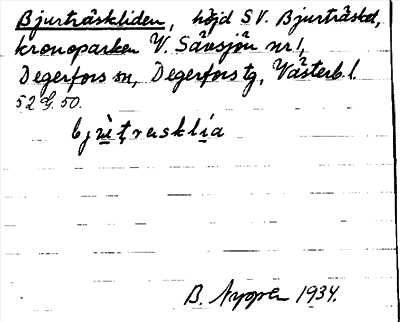 Bjurträskliden, höjd SV. Bjurträsket,
kronoparken V. Sävsjön nr 1,
Degerfors sn, Degerfors tg, Västerb. l.
52 G. 50.
B. 1934.